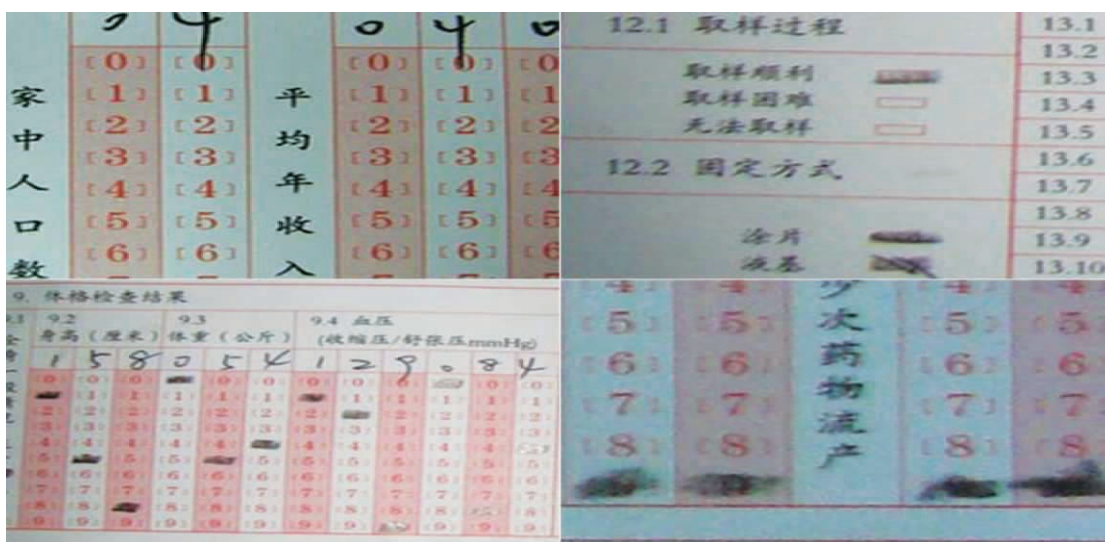 0 4
0 4 0
家中人口数
[0] [0]
[1] [1]
[2] [2]
[3] [3]
[4] [4]
[5] [5]
[6] [6]
平均年收入
[0] [0] [0
[1] [1] [1
[2] [2] [2
[3] [3] [3
[4] [4] [4
[5] [5] [5
[6] [6] [6
12.1 取样过程
取样顺利
取样困难
无法取样
12.2 固定方式
涂片
液基
13.1
13.2
13.3
13.4
13.5
13.6
13.7
13.8
13.9
13.10
9. 体格检查结果
9.2 9.3 9.4 血压
身高（厘米） 体重（公斤） (收缩压/舒张压mmHg)
1 5 8 0 5 4 1 2 9 0 8 4
[0] [0] [0] [0] [0] [0] [0] [0] [0]
[1] [1] [1] [1] [1] [1] [1] [1] [1] [1]
[2] [2] [2] [2] [2] [2] [2] [2] [2] [2] [2]
[3] [3] [3] [3] [3] [3] [3] [3] [3] [3] [3] [3]
[4] [4] [4] [4] [4] [4] [4] [4] [4] [4]
[5] [5] [5] [5] [5] [5] [5] [5] [5] [5]
[6] [6] [6] [6] [6] [6] [6] [6] [6] [6] [6] [6]
[7] [7] [7] [7] [7] [7] [7] [7] [7] [7] [7] [7]
[8] [8] [8] [8] [8] [8] [8] [8] [8] [8]
[9] [9] [9] [9] [9] [9] [9] [9] [9] [9] [9]
次药物流产
[5] [5] [5] [5]
[6] [6] [6] [6]
[7] [7] [7] [7]
[8] [8] [8] [8]